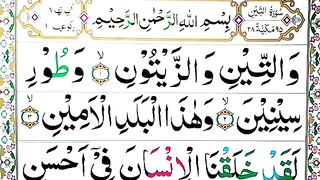 سُوْرَةُ التِّيْنِ
بِسْمِ اللهِ الرَّحْمٰنِ الرَّحِيْمِ
وَالتِّيْنِ وَالزَّيْتُوْنِ ۙ۱ وَطُوْرِ
سِيْنِيْنَ ۙ۲ وَهٰذَا الْبَلَدِ الْاَمِيْنِ ۙ۳
لَقَدْ خَلَقْنَا الْاِنْسَانَ فِيْۤ اَحْسَنِ